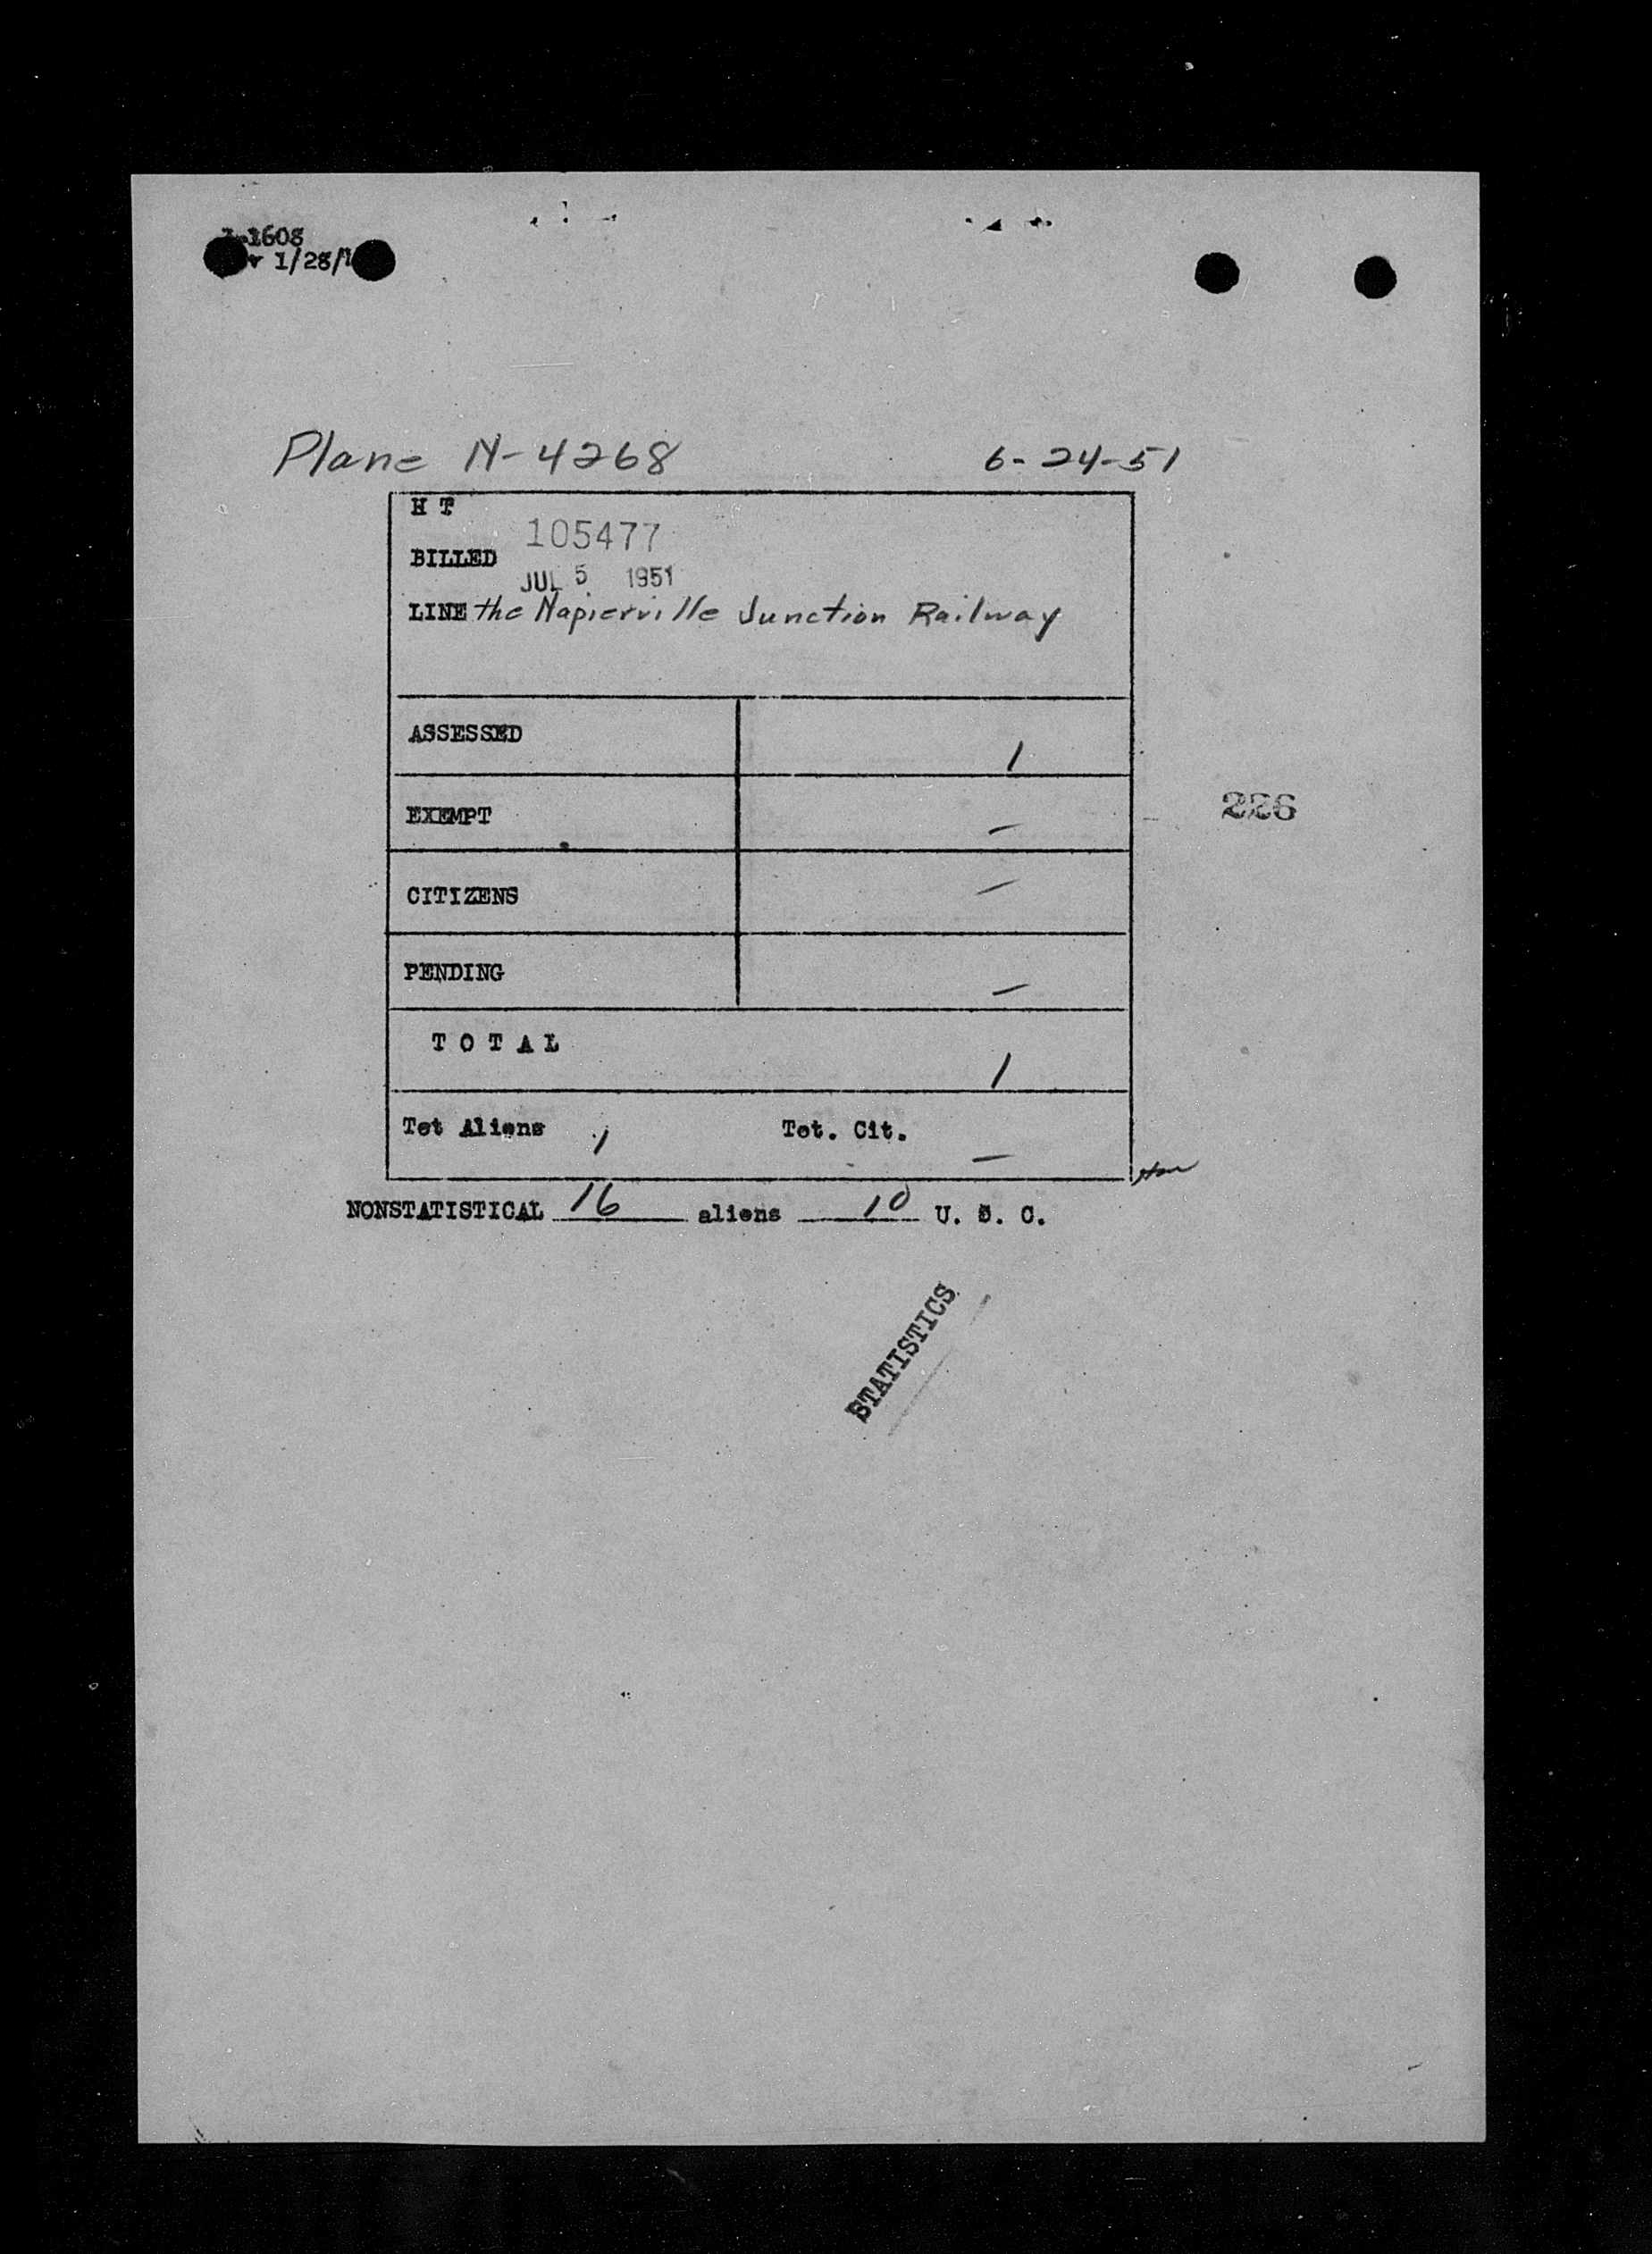 1608
1/28/
Plane N-4268 6-24-51
H T
105477
BILLED
JUL 5 1951
LINE the Napierville Junction Railway
ASSESSED 1
226
EXEMPT –
CITIZENS –
PENDING –
T O T A L 1
Tot Aliens 1 Tot. Cit. –
NONSTATISTICAL 16 aliens 10 U. S. C.
STATISTICS